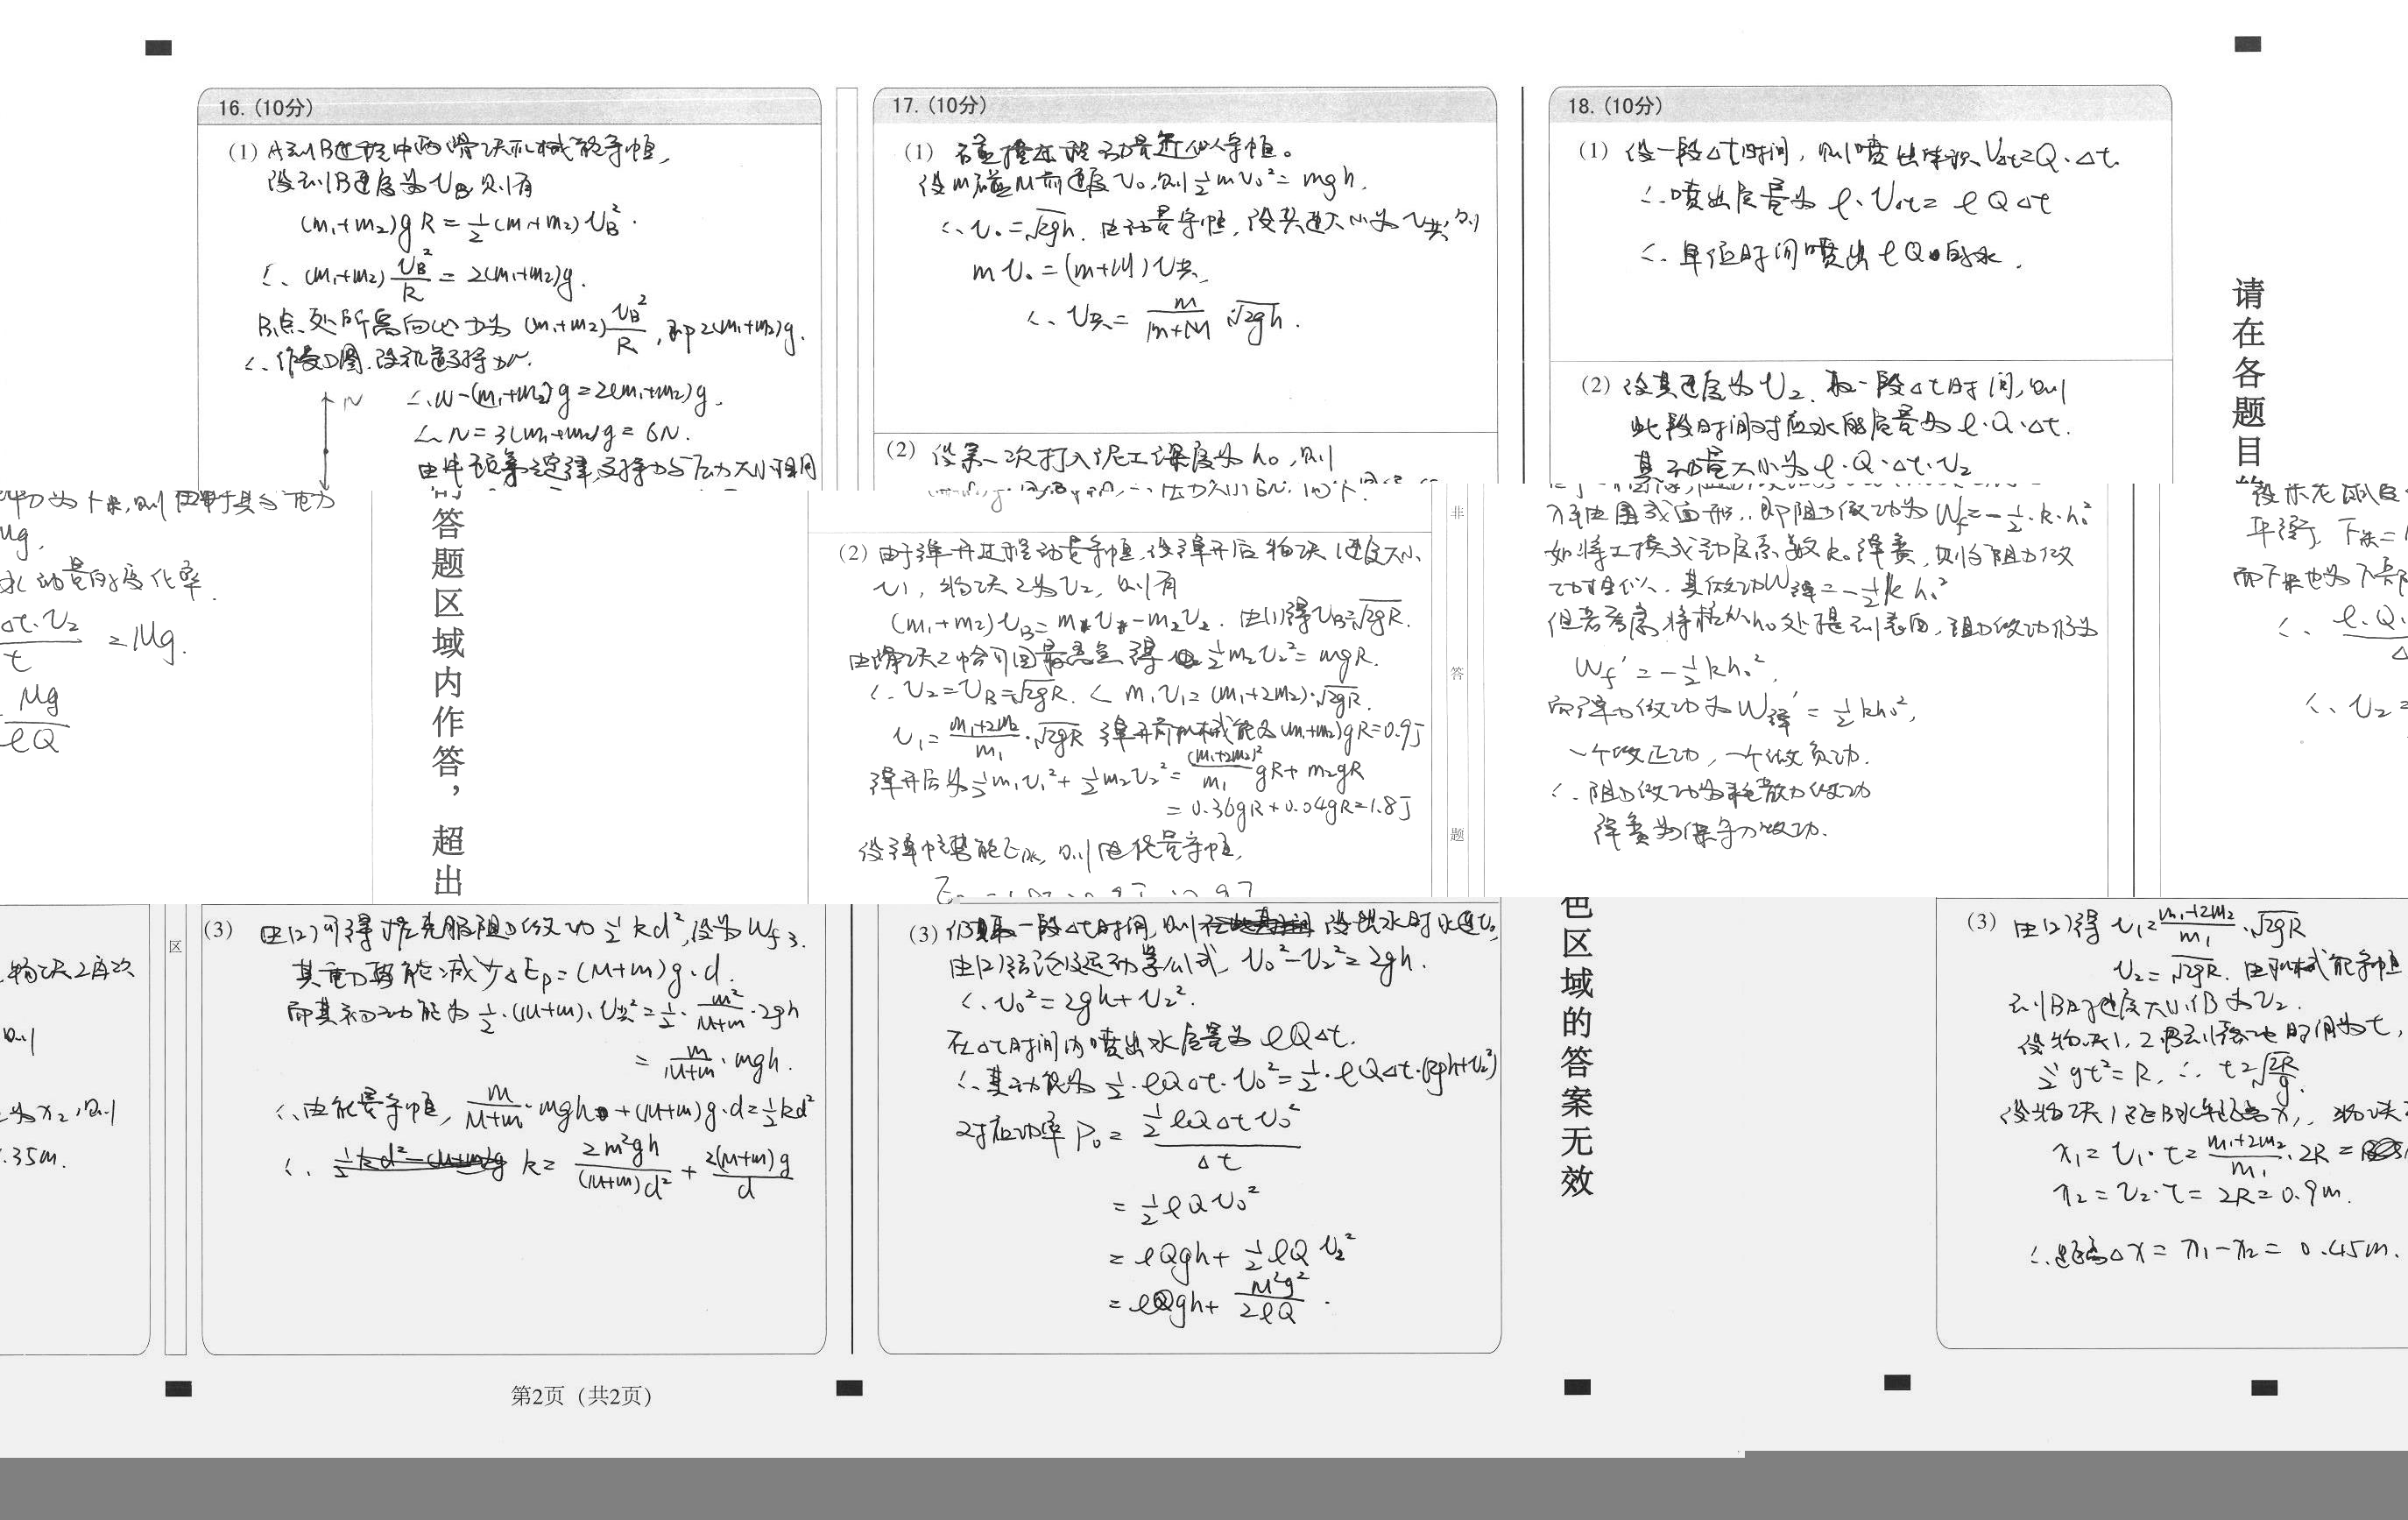 16. (10分)
(1) A到B过程中两滑块机械能守恒,
设到B速度为v_B,则有
(m₁+m₂)gR=½(m₁+m₂)v_B².
∴ (m₁+m₂)v_B²/R = 2(m₁+m₂)g.
B点处所需向心力为(m₁+m₂)v_B²/R,即2(m₁+m₂)g.
∴作受力图.设轨道支持力N.
∴N-(m₁+m₂)g=2(m₁+m₂)g.
∴N=3(m₁+m₂)g=6N.
由牛顿第三定律,支持力与压力大小相同
N
17. (10分)
(1) 动量近似守恒。
设m碰M前速度v₀,则½mv₀²=mgh.
∴v₀=√2gh.由动量守恒,设共速大小为v共,则
mv₀=(m+M)v共,
∴v共= m/(m+M) √2gh.
(2) 设第一次打入泥土深度为h₀,则
18. (10分)
(1) 设一段Δt时间,则喷出体积V_Δt=Q·Δt
∴喷出质量为ρ·V_Δt=ρQΔt
∴单位时间喷出ρQ的水.
(2) 设其速度为v₂.取一段Δt时间,则
此段时间对应水的质量为ρ·Q·Δt.
其动量大小为ρ·Q·Δt·v₂
请在各题目的
冲力为F冲,则由于其与重力
Mg,
水动量的变化率.
Δt·v₂/t =Mg.
Mg/ρQ
答题区域内作答,超出
(2) 由于弹开过程动量守恒,设弹开后物块1速度大小
v₁,物块2为v₂,则有
(m₁+m₂)v_B=m₁v₁-m₂v₂.由(1)得v_B=√2gR.
由滑块2恰可回最高点得½m₂v₂²=mgR.
∴v₂=v_B=√2gR.∴m₁v₁=(m₁+2m₂)·√2gR.
v₁=(m₁+2m₂)/m₁·√2gR 弹开前机械能为(m₁+m₂)gR=0.9J
弹开后为½m₁v₁²+½m₂v₂²=(m₁+2m₂)²/m₁ gR+m₂gR
=0.36gR+0.04gR=1.8J
设弹性势能E_pk,则由能量守恒,
非
答
题
入平方围成面形,即阻力做功为W_f=-½·k·h₀²
如将土换成劲度系数k的弹簧,则与阻力做
功相似,其做功W弹=-½kh₀²
但若考虑将桩从h₀处提到表面,阻力做功仍为
W_f'=-½kh₀²,
而弹力做功为W弹'=½kh₀²,
一个做正功,一个做负功.
∴阻力做功为耗散力做功
弹簧为保守力做功.
平衡,F冲=
∴ ρ·Q·
∴ v₂=
,物块2再次
则
为x₂,则
.35m.
区
(3) 由(2)可得桩克服阻力做功½kd²,设为W_f3.
其重力势能减少ΔE_p=(M+m)g·d.
而其初动能为½·(M+m)·v共²=½·m²/(M+m)·2gh
=m/(M+m)·mgh.
∴由能量守恒,m/(M+m)·mgh+(M+m)g·d=½kd²
∴ k=2m²gh/(M+m)d²+2(M+m)g/d
(3) 仍取一段Δt时间,则设出水时水速v₀,
由(2)结论及运动学公式,v₀²-v₂²=2gh.
∴v₀²=2gh+v₂².
在Δt时间内喷出水质量为ρQΔt.
∴其动能为½·ρQΔt·v₀²=½·ρQΔt·(2gh+v₂²)
对应功率P₀=½ρQΔtv₀²/Δt
=½ρQv₀²
=ρQgh+½ρQv₂²
=ρQgh+M²g²/2ρQ.
色区域的答案无效
(3) 由(2)得v₁=(m₁+2m₂)/m₁·√2gR
v₂=√2gR.由机械能守恒
到B时速度大小仍为v₂.
设物块1,2落到地时间为t,
½gt²=R,∴t=√2R/g.
设物块1距B水平距离x₁,物块
x₁=v₁·t=(m₁+2m₂)/m₁·2R=
x₂=v₂·t=2R=0.9m.
∴距离Δx=x₁-x₂=0.45m.
第2页 (共2页)